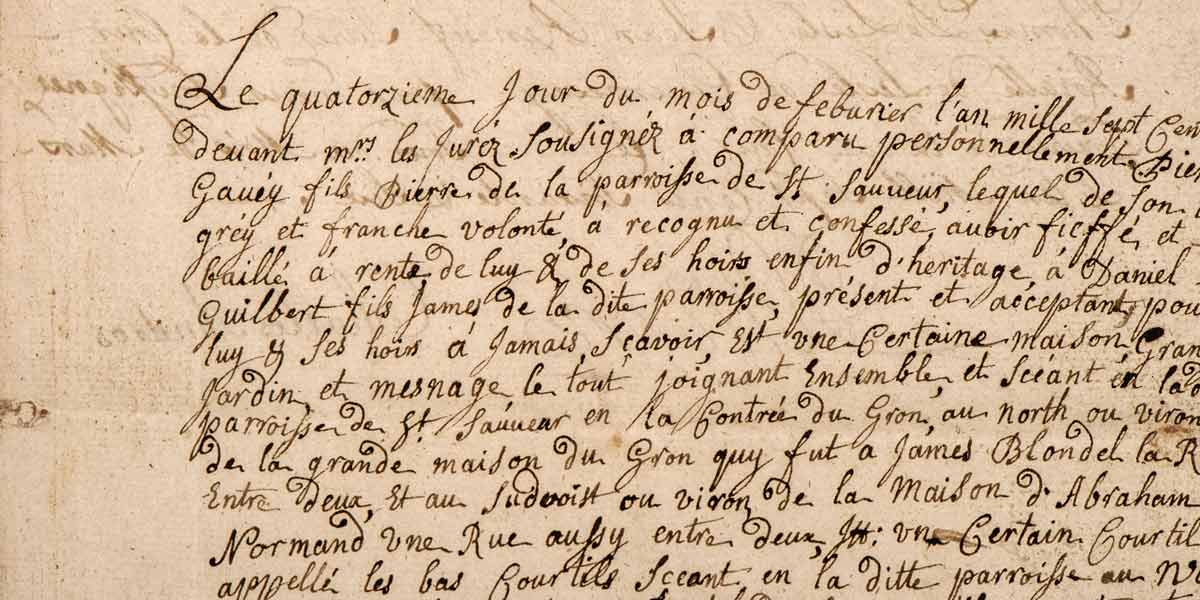 Le quatorzieme Jour du mois de feburier l'an mille sept Cen
devant mrs les Juréz sousignéz à comparu personnellement Pier
Gavéy fils Pierre de la parroisse de St Sauveur, lequel de son
gréy et franche volonté, à recognu et confessé, avoir fieffé et
baillé à rente de luy & de ses hoirs enfin d'heritage, à Daniel
Guilbert fils James de la dite parroisse, présent et acceptant, pou
luy & ses hoirs à Jamais, sçavoir, Est une Certaine maison, Gran
Jardin, et mesnage le tout joignant Ensemble, et scéant en la d
parroisse de St Sauveur en la Contrée du Gron, au north ou viron
de la grande maison du Gron quy fut a James Blondel la R
Entre deux, Et au Sudvoist ou viron de la Maison d'Abraham
Normand une Rue aussy entre deux, Itt: un Certain Courtil
appellé les bas Courtils sceant en la ditte parroisse au N